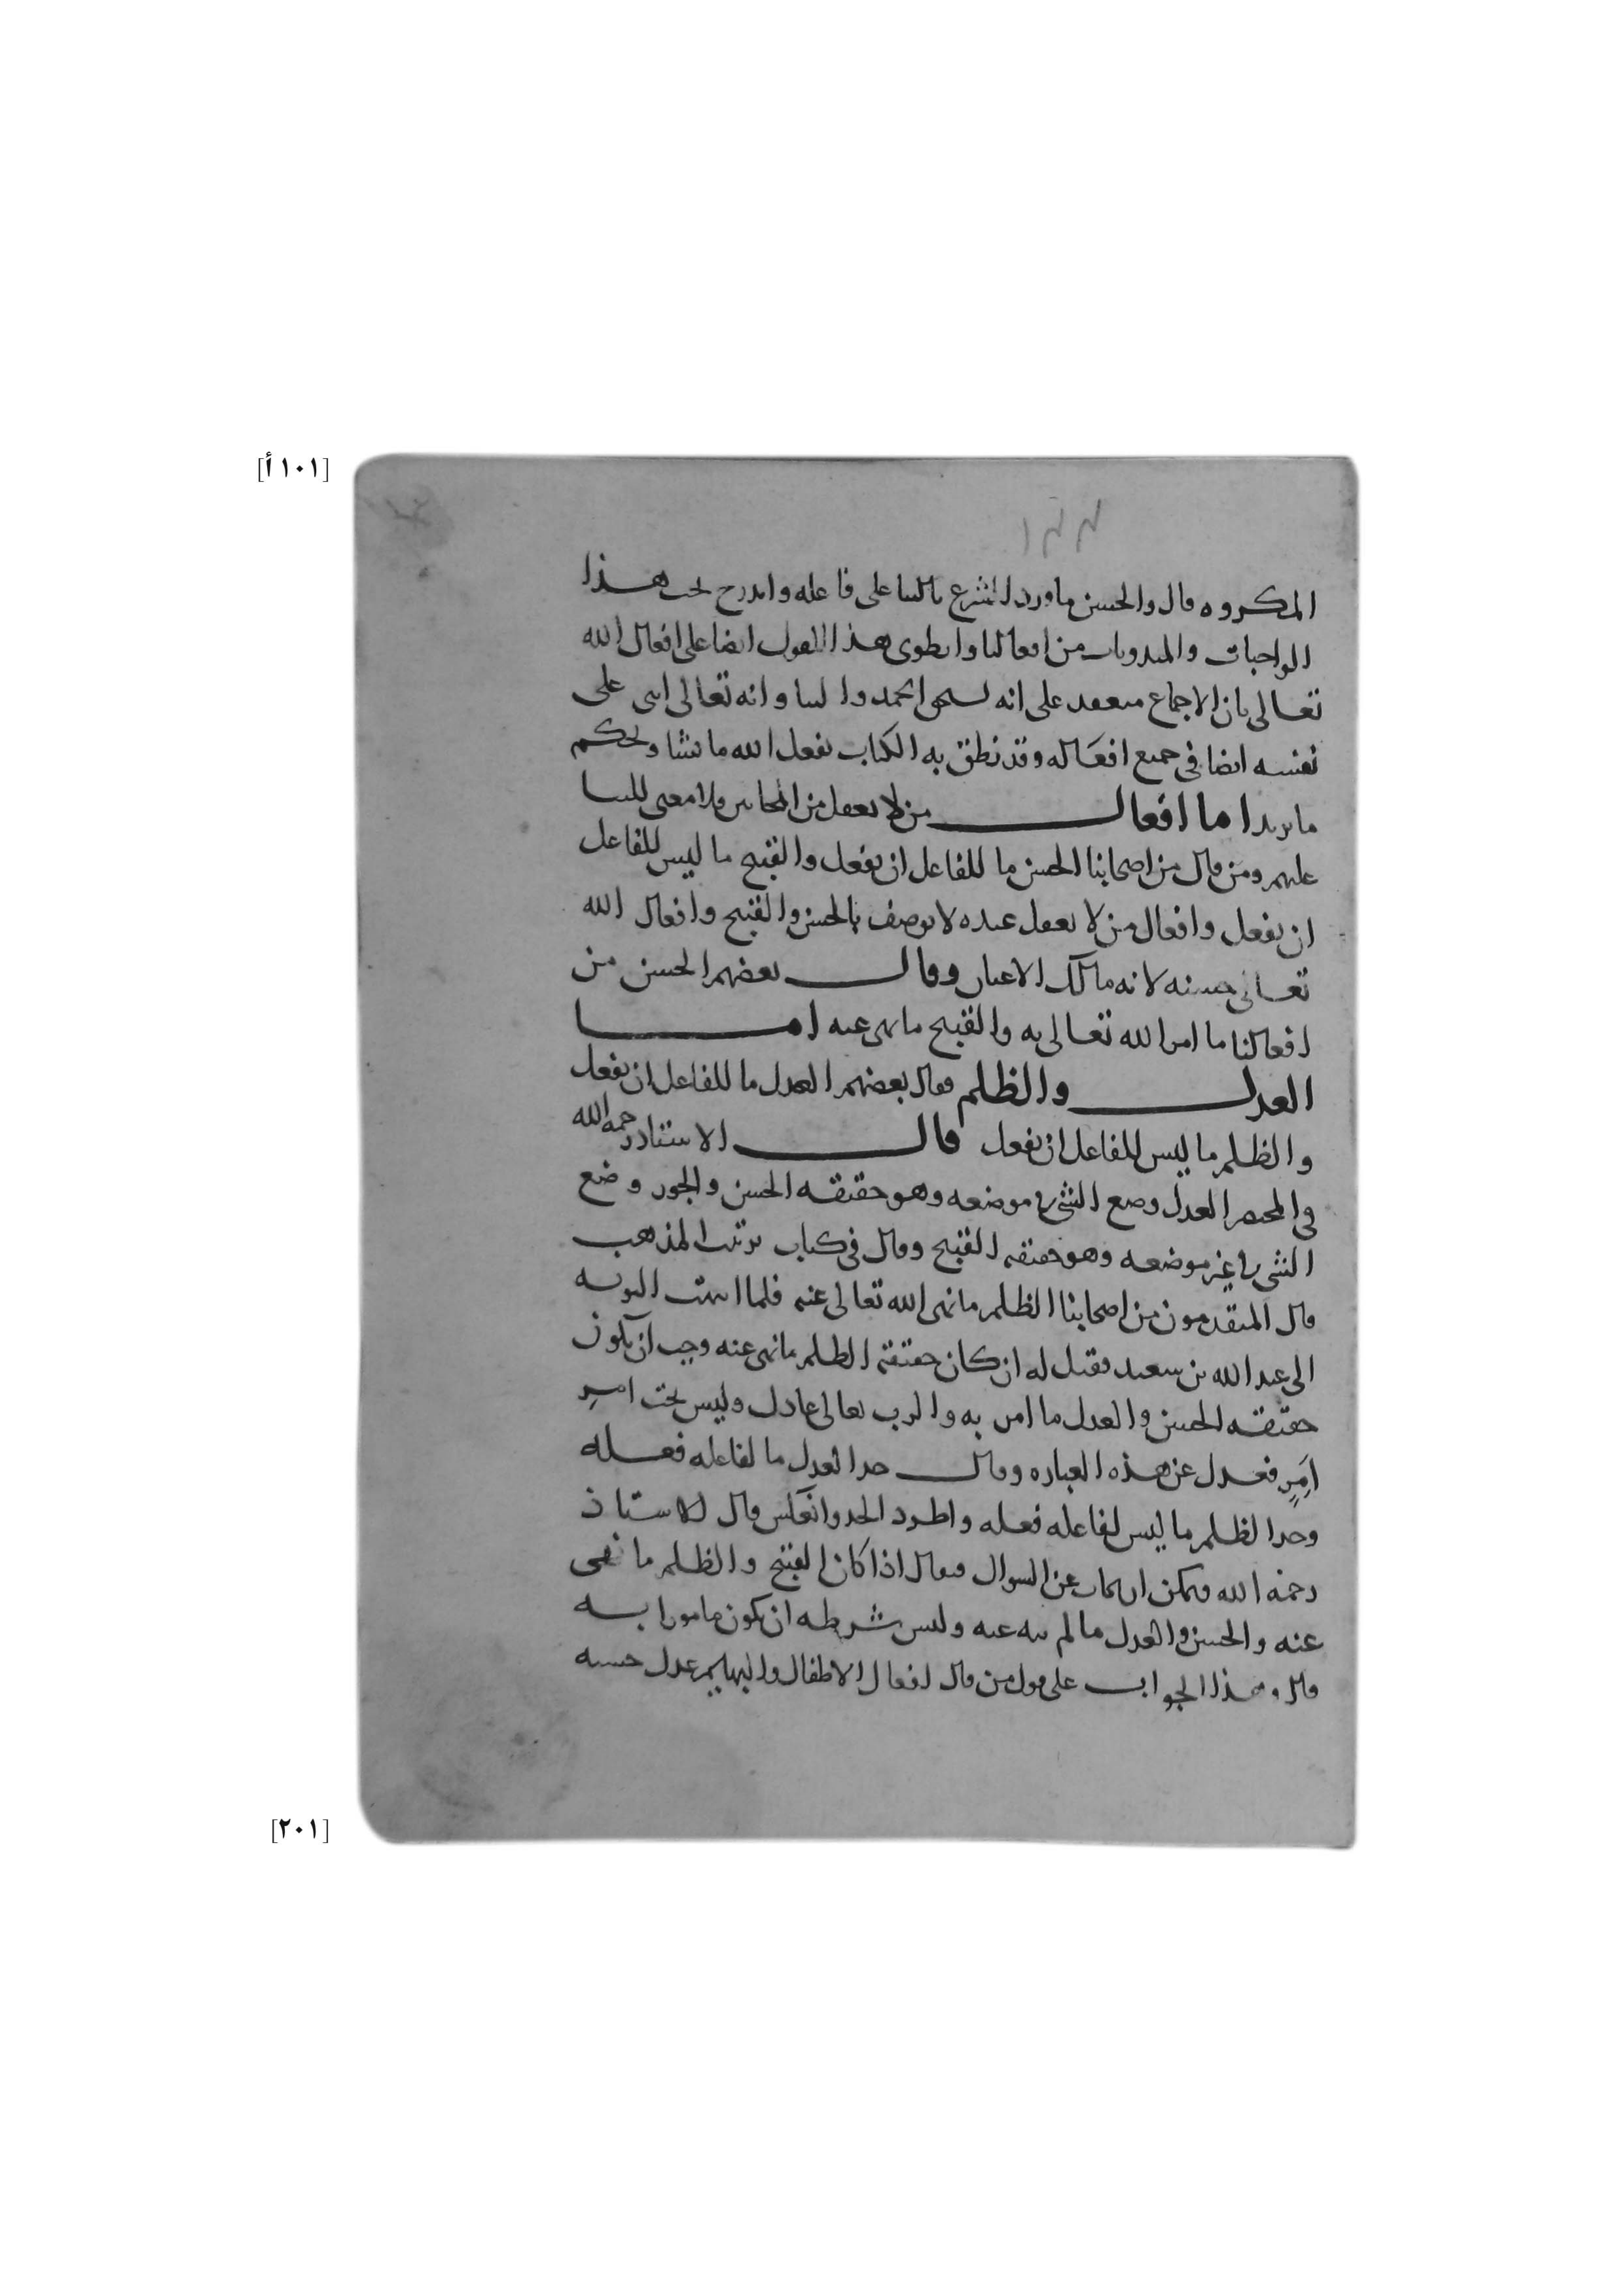 [١٠١ أ]
١٣٣
المكروه قال والحسن ما ورد الشرع بالثنا على فاعله واندرج تحت هذا
الواجبات والمندوبات من افعالنا وانطوى هذا القول ايضا على افعال الله
تعالى بان الاجماع منعقد على انه يستحق الحمد والثنا وانه تعالى اثنى على
نفسه ايضا في جميع افعاله وقد نطق به الكتاب يفعل الله ما يشا ويحكم
ما يريد اما افعال من لا يعقل من المجانين فلا معنى للثنا
عليهم ومن قال من اصحابنا الحسن ما للفاعل ان يفعل والقبيح ما ليس للفاعل
ان يفعل وافعال من لا يعقل عنده لا يوصف بالحسن والقبيح وافعال الله
تعالى حسنه لانه مالك الاعيان وقال بعضهم الحسن من
افعالنا ما امر الله تعالى به والقبيح ما نهى عنه اما
العدل والظلم فقال بعضهم العدل ما للفاعل ان يفعل
والظلم ما ليس للفاعل ان يفعل قال الاستاد رحمه الله
في المختصر العدل وضع الشي في موضعه وهو حقيقه الحسن والجور وضع
الشي في غير موضعه وهو حقيقه القبيح وقال في كتاب ترتيب المذهب
قال المتقدمون من اصحابنا الظلم ما نهى الله تعالى عنه فلما انتهت النوبه
الى عبد الله بن سعيد فقيل له ان كان حقيقة الظلم ما نهى عنه وجب ان يكون
حقيقه الحسن والعدل ما امر به والرب تعالى عادل وليس تحت امر
امر فعدل عن هذه العباره وقال حد العدل ما لفاعله فعله
وحد الظلم ما ليس لفاعله فعله واطرد الحد وانعكس قال الاستاذ
رحمه الله ويمكن ان يجاب عن السوال فيقال اذا كان القبيح والظلم ما نهى
عنه والحسن والعدل ما لم ينه عنه وليس شرطه ان يكون مامورا به
قال وهذا الجواب على قول من قال افعال الاطفال والبهايم عدل حسنه
[٢٠١]